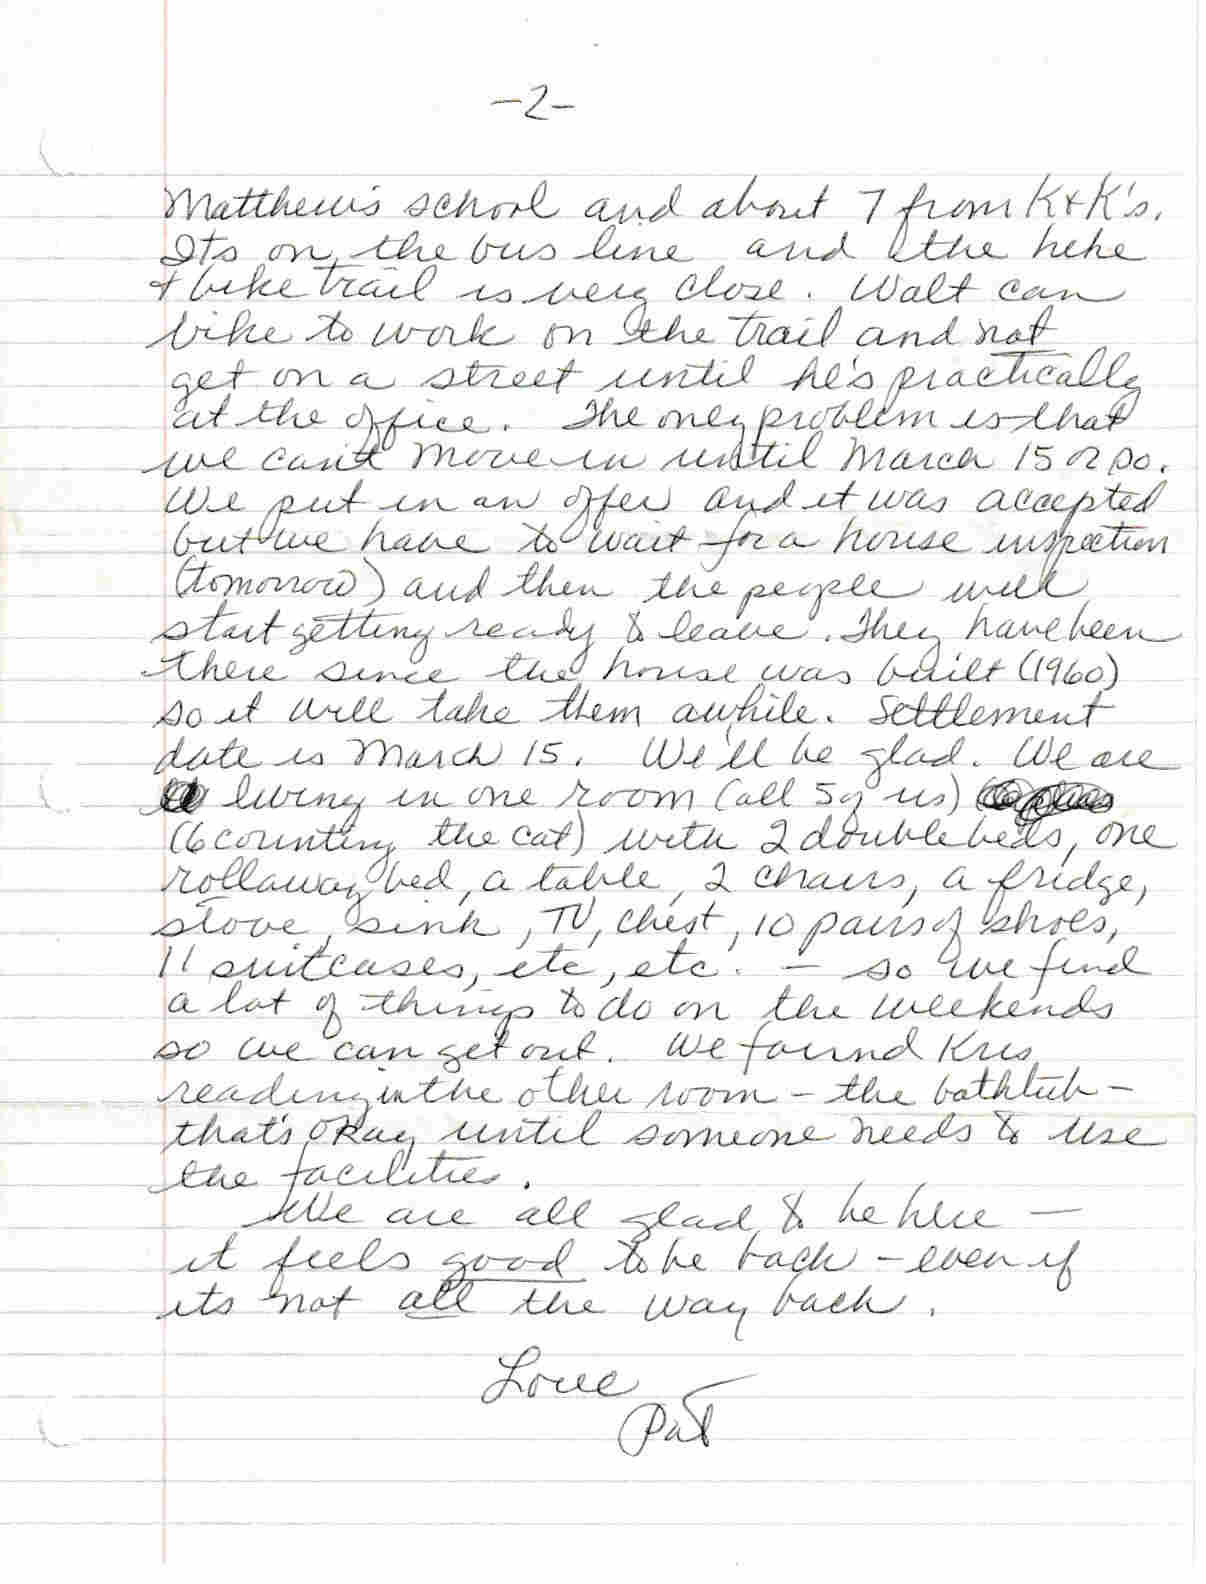 -2-
Matthew's school and about 7 from K+K's.
Its on the bus line and the hike
+ bike trail is very close. Walt can
bike to work on the trail and not
get on a street until he's practically
at the office. The only problem is that
we can't move in until March 15 or so.
We put in an offer and it was accepted
but we have to wait for a house inspection
(tomorrow) and then the people will
start getting ready to leave. They have been
there since the house was built (1960)
so it will take them awhile. Settlement
date is March 15. We'll be glad. We are
living in one room (all 5 of us)
(6 counting the cat) with 2 double beds, one
rollaway bed, a table, 2 chairs, a fridge,
stove, sink, TV, chest, 10 pairs of shoes,
11 suitcases, etc, etc. - so we find
a lot of things to do on the weekends
so we can get out. We found Kris
reading in the other room - the bathtub -
that's okay until someone needs to use
the facilities.
We are all glad to be here -
it feels good to be back - even if
its not all the way back.
Love
Pat